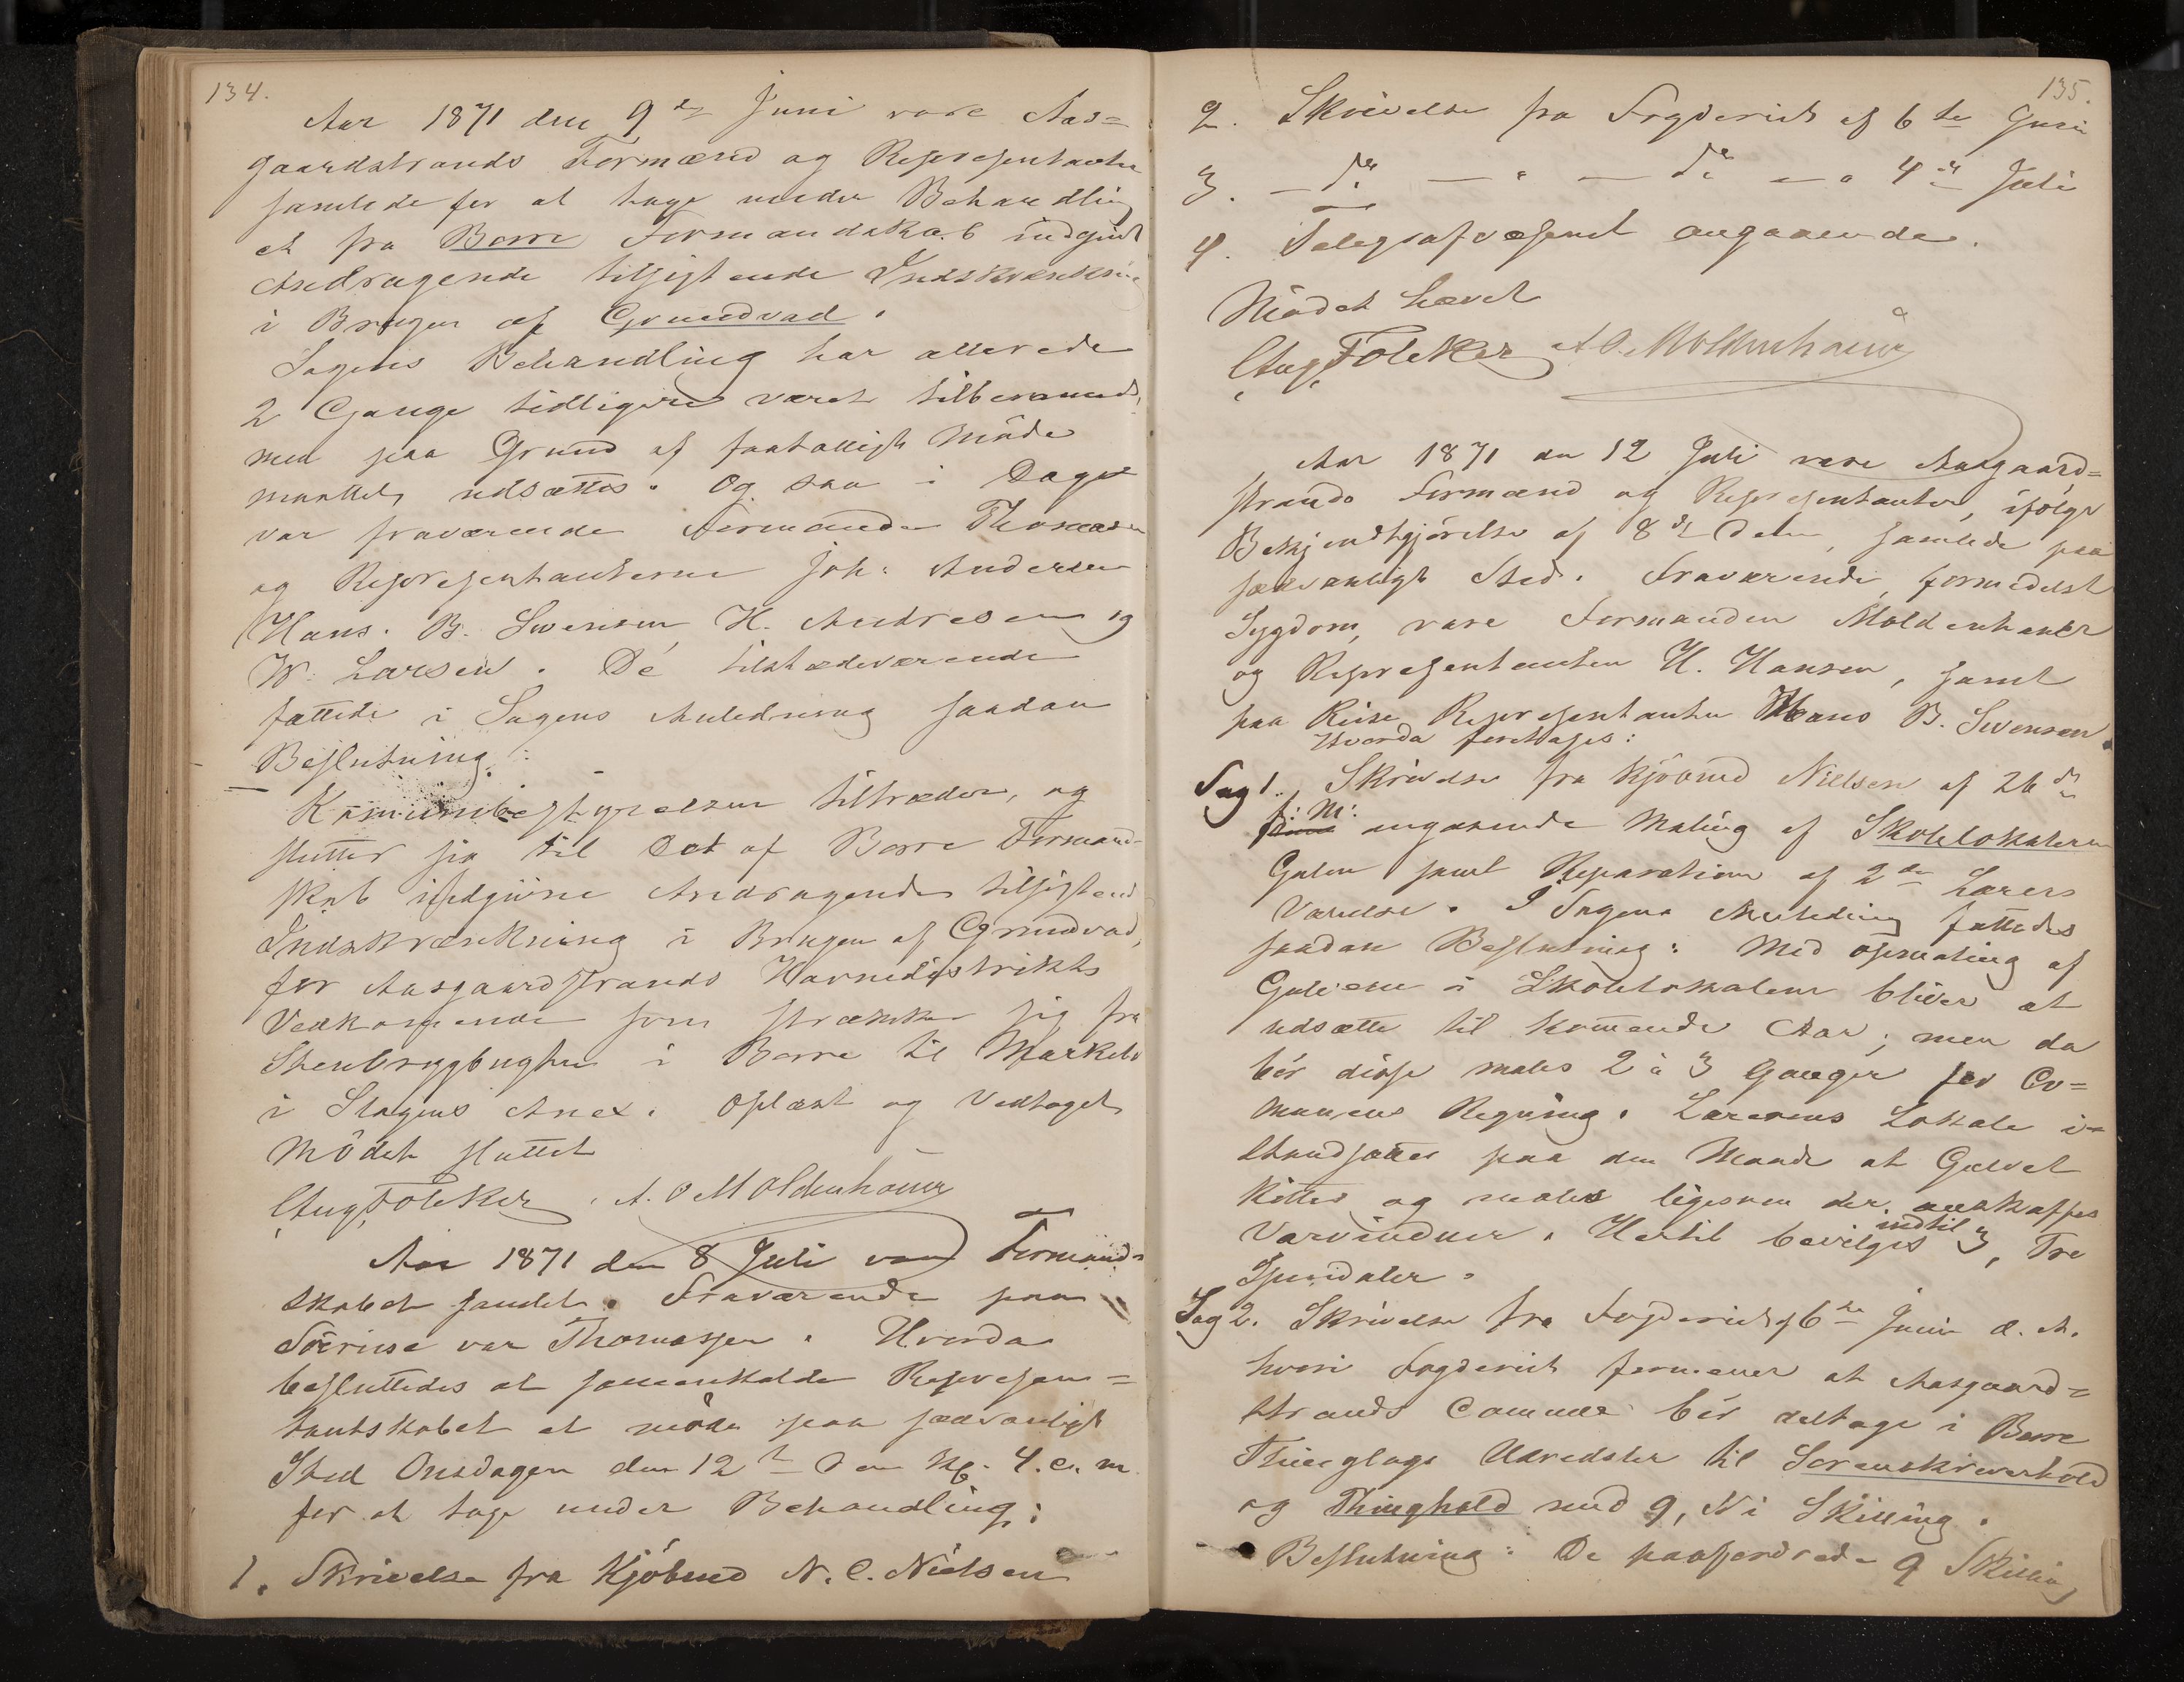 134.
Aar 1871 den 9de Juni vare Aas=
gaardstrands Formænd og Repræsentanter
samlede for at tage under Behandling
et fra Borre Formandskab indgivet
Andragende tilsigtende Indskrænkning
i Brugen af Grundvad.
Sagens Behandling har allerede
2 Gange tidligere været tilberammed,
men paa Grund af faatalligt Møde
maattet udsættes. Og saa i Dage
var fraværende Formanden Thomasen
og Repræsentanterne Joh: Andersen
Hans. B. Svensen H. Andresen og
W. Larsen. De tilstedeværende
fattede i Sagens Anledning saadan
Beslutning:
Komunbestyrelsen tiltræder, og
slutter sig til det af Borre Formand-
skab indgivne Andragende tilsigtend
Indskrænkning i Brugen af Grundvad,
for Aasgaardstrands Havnedistrikts
Vedkomende som strækker sig fra
Stenbrygbugten i Borre til
i Slagens Anex. Oplæst og Vedtaget
Mödet sluttet
Aug. Foleker. A. O Moldenhauer
Aar 1871 den 8 Juli var Formand=
skabet samlet. Fraværende paa
Söreise var Thomassen. Hvorda
besluttedes at sammenkalde Repræsen=
tantskabet at möde paa sædvanligt
Sted Onsdagen den 12te d. m Kl. 4. e. m.
for at tage under Behandling:
1. Skrivelse fra Kjöbmd N. C. Nielsen
135.
2. Skrivelse fra Fogderiet af 6te Juni
3. — do — " — do — " 4de Juli
4. Telegrafvæsenet angaaende.
Mödet hævet
Aug. Foleker A O. Moldenhauer
Aar 1871 den 12 Juli vare Aasgaard=
strands Formænd og Repræsentanter, ifölge
Bekjendtgjörelse af 8de ds, samlede paa
sædvanligt Sted. Fraværende, formedelst
Sygdom, vare Formanden Moldenhauer
og Repræsentanten H. Hansen, samt
paa Reise Repræsentanten Hans B. Svensen.
Hvorda foretages:
Sag 1. Skrivelse fra Kjöbmd Nielsen af 26de
f: M: angaaende Maling af Skolelokalernes
Gulve samt Reparation af 2den Lærers
Værelse. I Sagens Anledning fattedes
saadan Beslutning: Med opmaling af
Gulvene i Skolelokalene bliver at
udsætte til kommende Aar; men da
bör disse males 2 à 3 Gange for Co=
munens Regning. Lærerens Lokale i=
standsættes paa den Maade at Gulvet
kittes og males ligesom der anskaffes
Varvinduer. Hertil bevilges indtil 3, Tre
Speciedaler.
Sag 2. Skrivelse fra Fogderiet af 6te Juni d. A.
hvori Fogderiet formener at Aasgaard=
strands Commune bör deltage i Borre
Thinglags Udredsler til Sorenskriverhold
og Thinghold med 9, Ni Skilling.
Beslutning: De paafordrede 9 Skilling